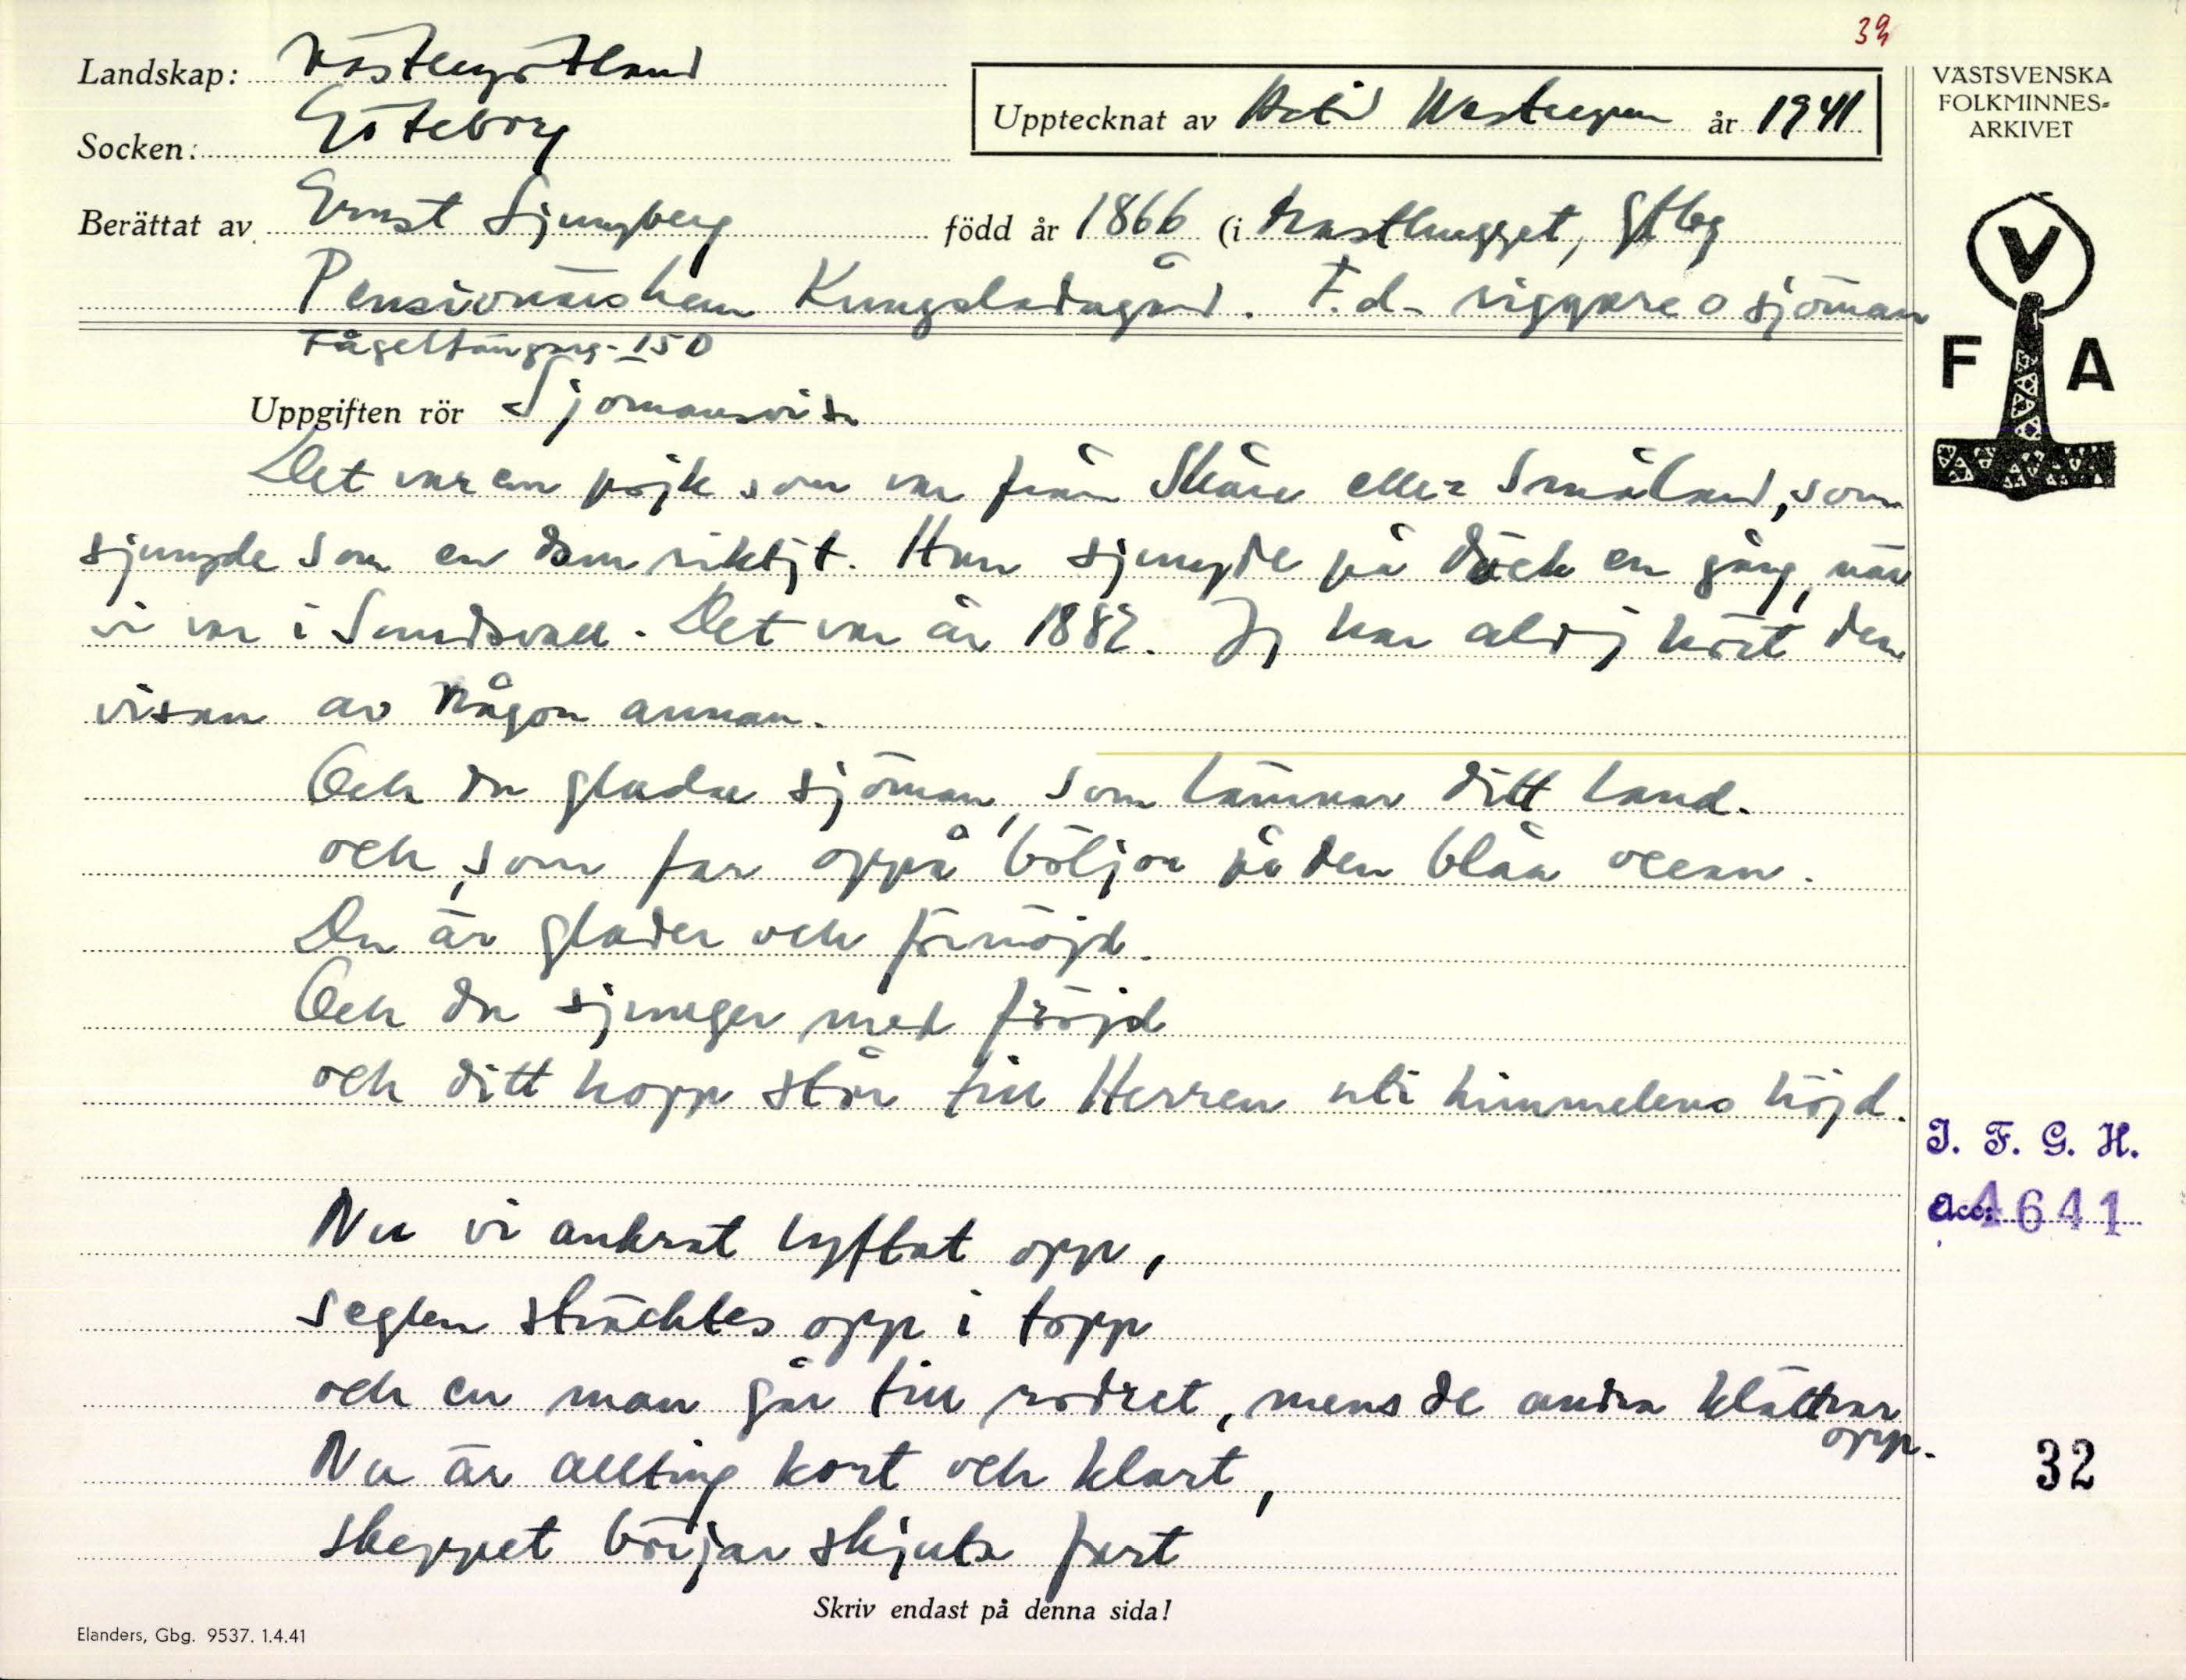 39
Landskap: Västergötland
Socken: Göteborg
Upptecknat av Arvid Westergren år 1941
Berättat av Ernst Ljungberg född år 1866 (i Masthugget, Gtbg
Pensionärshem Kungsladugård. F.d. riggare o sjöman
Fågelfängareg. 15 D
Uppgiften rör Sjömansvisa
Det var en pojk som var från Skåne eller Småland, som
sjungde som en dam riktit. Han sjungde på däck en gång, när
vi var i Sundsvall. Det var år 1882. Jag har aldrig hört den
visan av någon annan.
Och du glada sjöman, som lämnar ditt land.
och, som far oppå böljor på den blåa ocean.
Du är glader och förnöjd.
Och du sjunger med fröjd
och ditt hopp står till Herren uti himmelens höjd.
Nu vi ankrat lyftat opp,
seglen sträcktes opp i topp
och en man går till rodret, mens de andra klättrar
opp.
Nu är allting kort och klart,
skeppet börjar skjuta fart
Skriv endast på denna sida!
Elanders, Gbg. 9537. 1.4.41
VÄSTSVENSKA
FOLKMINNES-
ARKIVET
V
F A
I. F. G. H.
Acc. 4641
32